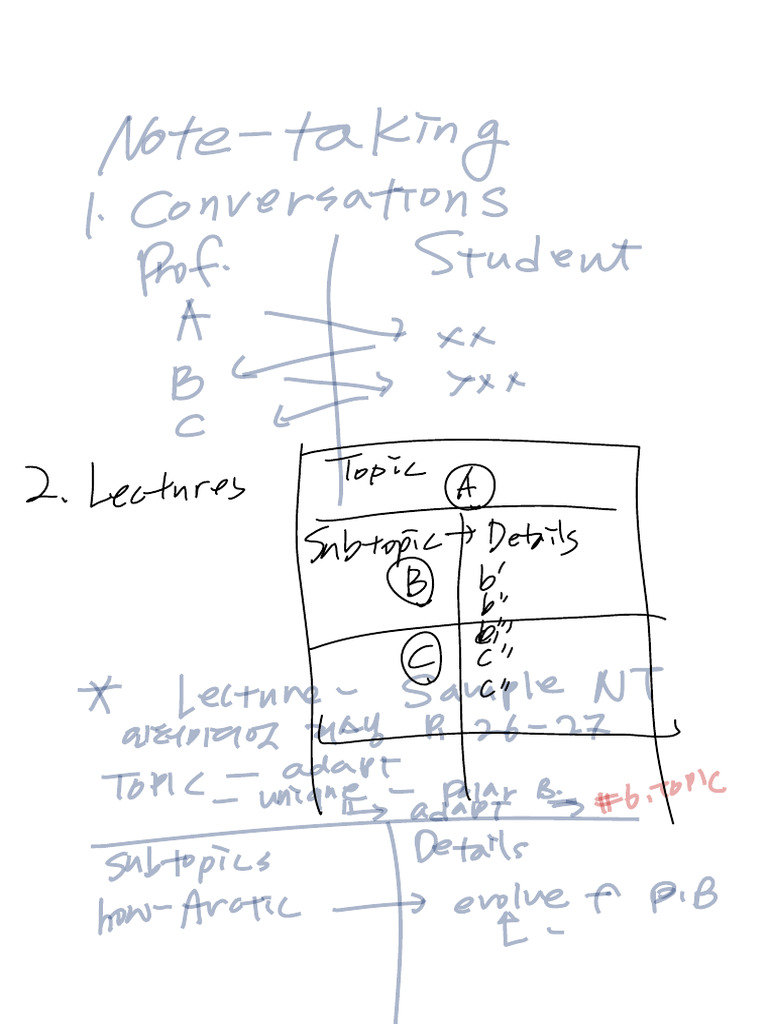 Note-taking
1. Conversations
Prof. Student
A xx
B yxx
C
2. Lectures
Topic A
Subtopic → Details
B b'
b"
b'"
C c"
c"
* Lecture - Sample NT
P. 26-27
Topic - adapt
- unique - Polar B.
↳ adapt → #6. TOPIC
Subtopics Details
how-Arctic → evolve P.B